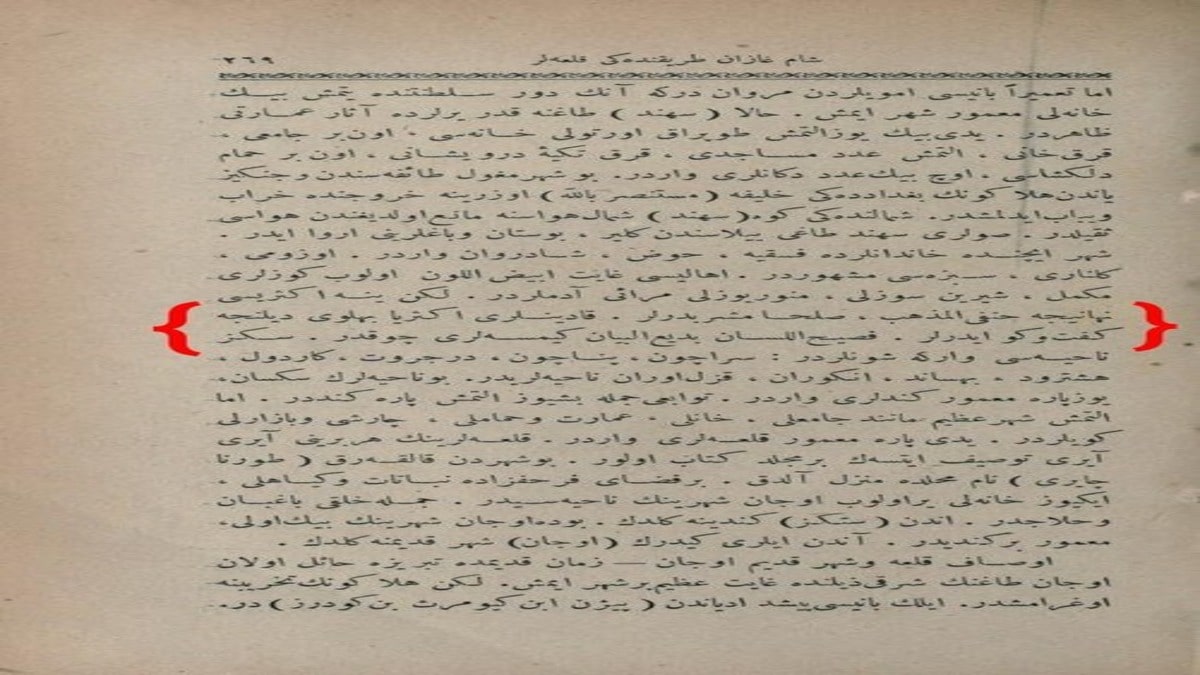 شام غازان طریقنده‌کی قلعه‌لر ٢٦٩
اما تعمیراً بانیسی امویلردن مروان درکه آنك دور سلطنتنده یتمش بیـك
خانه‌لی معمور شهر ایمش . حالا ( سهند ) طاغنه قدر یرلرده آثار عمـارتی
ظاهردر . یدی‌بیك یوزالتمش طوپراق اورتولی خـانه‌سی ، اون‌بر جامعی ،
قرق‌خانی . التمش عدد مسـاجدی ، قرق تکیۀ درویشـانی ، اون بر حمام
دلکشاسی ، اوچ بیك‌عدد دکانلری واردر. بو شهرمغول طائفه‌سندن‌وجنکیز
یاندن‌هلا کونك بغدادده‌کی خلیفه (مستنصر بالله) اوزرینه خروجنده خراب
ویباب‌ایدلمشدر. شمالنده‌کی کوه( سهند ) شمال‌هواسنه مانع‌اولدیغندن هواسی
ثقیلدر . صولری سهند طاغی ییلاسندن کلیر . بوستان وباغلرینی اروا ایدر .
شهر ایچنـده خاندانلرده فسقیه ، حوض ، شـادروان واردر . اوزومی ،
کلناری ، سبزه‌سی مشهوردر . اهالیسی غایت ابیض‌اللون اولوب کوزلری
مکمل ، شیرین سوزلی ، منوریوزلی مرائی آدملردر . لکن ینـه‌اکثریسی
نهانیجه حنفی‌المذهب ، صلحـا مشربدرلر . قادینـلری اکثریا پهلوی دیلنجه
کفت‌وکو ایدرلر . فصیح‌اللسـان بدیع‌البیان کیمسـه‌لری چوقدر . سـکز
ناحیـه‌سی وارکه شونلردر : سراچون، پنـاچون ، دیزجروت ، کاردول ،
هشترود . بهساند ، انکوران ، قزل‌اوزان ناحیه‌لریدر. بوناحیه‌لرك سکسان،
یوزپاره معمور کندلری واردر . توابعی‌جمله بشیوز التمش پاره کنددر . اما
التمش شهرعظیم مانند جامعلی ، خانلی ، عمارت وحماملی ، چارشی وبازارلی
کویلردر . یدی پاره معمور قلعـه‌لری واردر . قلعـه‌لرینك هربرینی آیری
آیری توصیف ایتسه‌ك برمجلد کتاب اولور . بوشهردن قالقـه‌رق ( طورنا
چایری ) نام محلده منزل آلدق . برفضـای فرحفزاده نباتات وکیاهلی ،
ایکیوز خانه‌لی یراولوب اوجان شهرینك ناحیه‌سـیدر . جمله‌خلقی باغبـان
وحلاجدر . اندن کندینه کلدك . بوده‌اوجان شهرینك بیك‌اولی،
معمور برکندیدر . آندن ایلری کیدرك (اوجان) شهر قدیمنه کلدك .
اوصـاف قلعه وشهر قدیم اوجان — زمان قدیمده تبریزه حائل اولان
اوجان طاغنك شرقی‌ذیلنده غایت عظیم‌برشهر ایمش. لکن هلا کونك‌تخریبنه
اوغرامشدر. ایلك بانیسی‌پیشدادیاندن ( بیژن ابن‌کیومرث بن‌کودرز ) در.